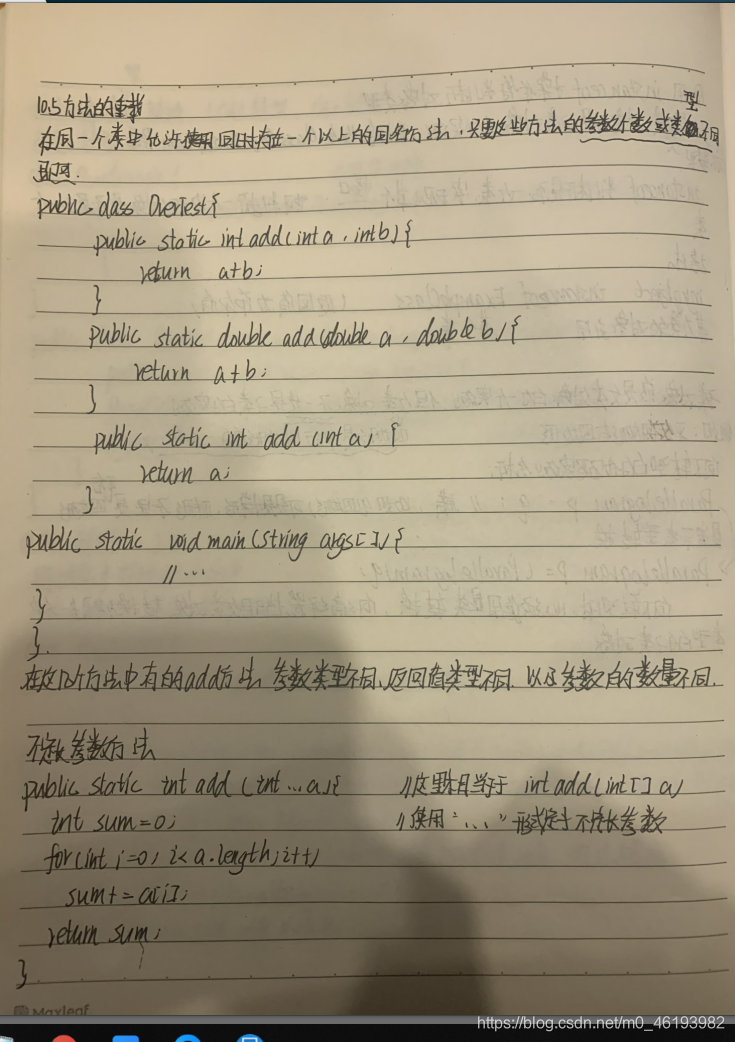 10.5方法的重载
在同一个类中允许使用同时存在一个以上的同名方法,只要这些方法的参数个数或类型不同
即可.
public class OverTest{
public static int add(int a, int b){
return a+b;
}
public static double add(double a, double b){
return a+b;
}
public static int add (int a) {
return a;
}
public static void main(string args[]){
//...
}
}.
在这几个方法中有的add方法 参数类型不同、返回值类型不同. 以及参数的数量不同.
不定长参数方法
public static int add (int...a){ //这里相当于 int add(int[] a)
int sum=0; //使用"..."形式定了不定长参数
for(int i=0; i<a.length;i++)
sum+=a[i];
return sum;
}
Maxleaf
https://blog.csdn.net/m0_46193982